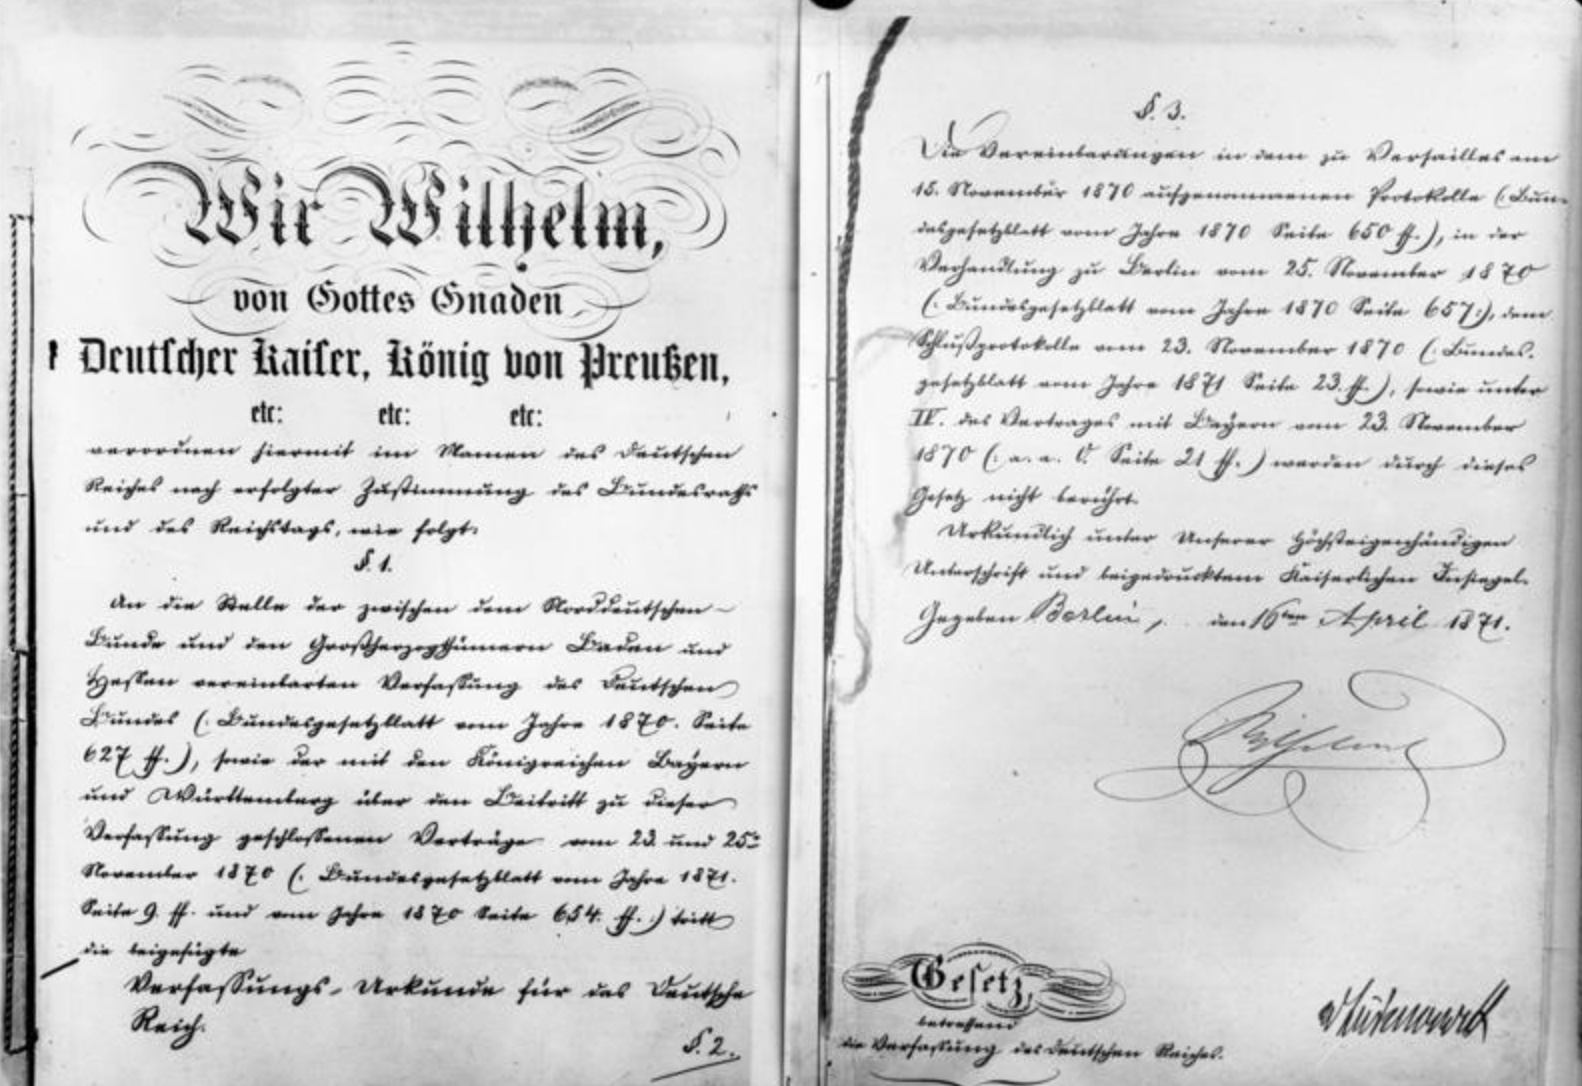 Wir Wilhelm,
von Gottes Gnaden
Deutscher Kaiser, König von Preußen,
etc: etc: etc:
verordnen hiermit im Namen des Deutschen
Reiches nach erfolgter Zustimmung des Bundesraths
und des Reichstags, wie folgt:
§. 1.
An die Stelle der zwischen dem Norddeutschen
Bunde und den Großherzogthümern Baden und
Hessen vereinbarten Verfassung des Deutschen
Bundes (: Bundesgesetzblatt vom Jahre 1870. Seite
627 ff.), sowie der mit den Königreichen Bayern
und Württemberg über den Beitritt zu dieser
Verfassung geschlossenen Verträge vom 23. und 25.
November 1870 (: Bundesgesetzblatt vom Jahre 1871.
Seite 9. ff. und vom Jahre 1870 Seite 654. ff.:) tritt
die beigefügte
Verfassungs-Urkunde für das Deutsche
Reich.
§. 2.
§. 3.
Die Vereinbarungen in dem zu Versailles am
15. November 1870 aufgenommenen Protokolle (: Bun-
desgesetzblatt vom Jahre 1870 Seite 650 ff.), in der
Verhandlung zu Berlin vom 25. November 1870
(: Bundesgesetzblatt vom Jahre 1870 Seite 657:), dem
Schlußprotokolle vom 23. November 1870 (: Bundes-
gesetzblatt vom Jahre 1871 Seite 23. ff.), sowie unter
IV. des Vertrages mit Bayern vom 23. November
1870 (: a. a. O. Seite 21 ff.) werden durch dieses
Gesetz nicht berührt.
Urkundlich unter Unserer Höchsteigenhändigen
Unterschrift und beigedrucktem Kaiserlichen Insiegel.
Gegeben Berlin, den 16ten April 1871.
Wilhelm
Gesetz,
betreffend
die Verfassung des Deutschen Reiches.